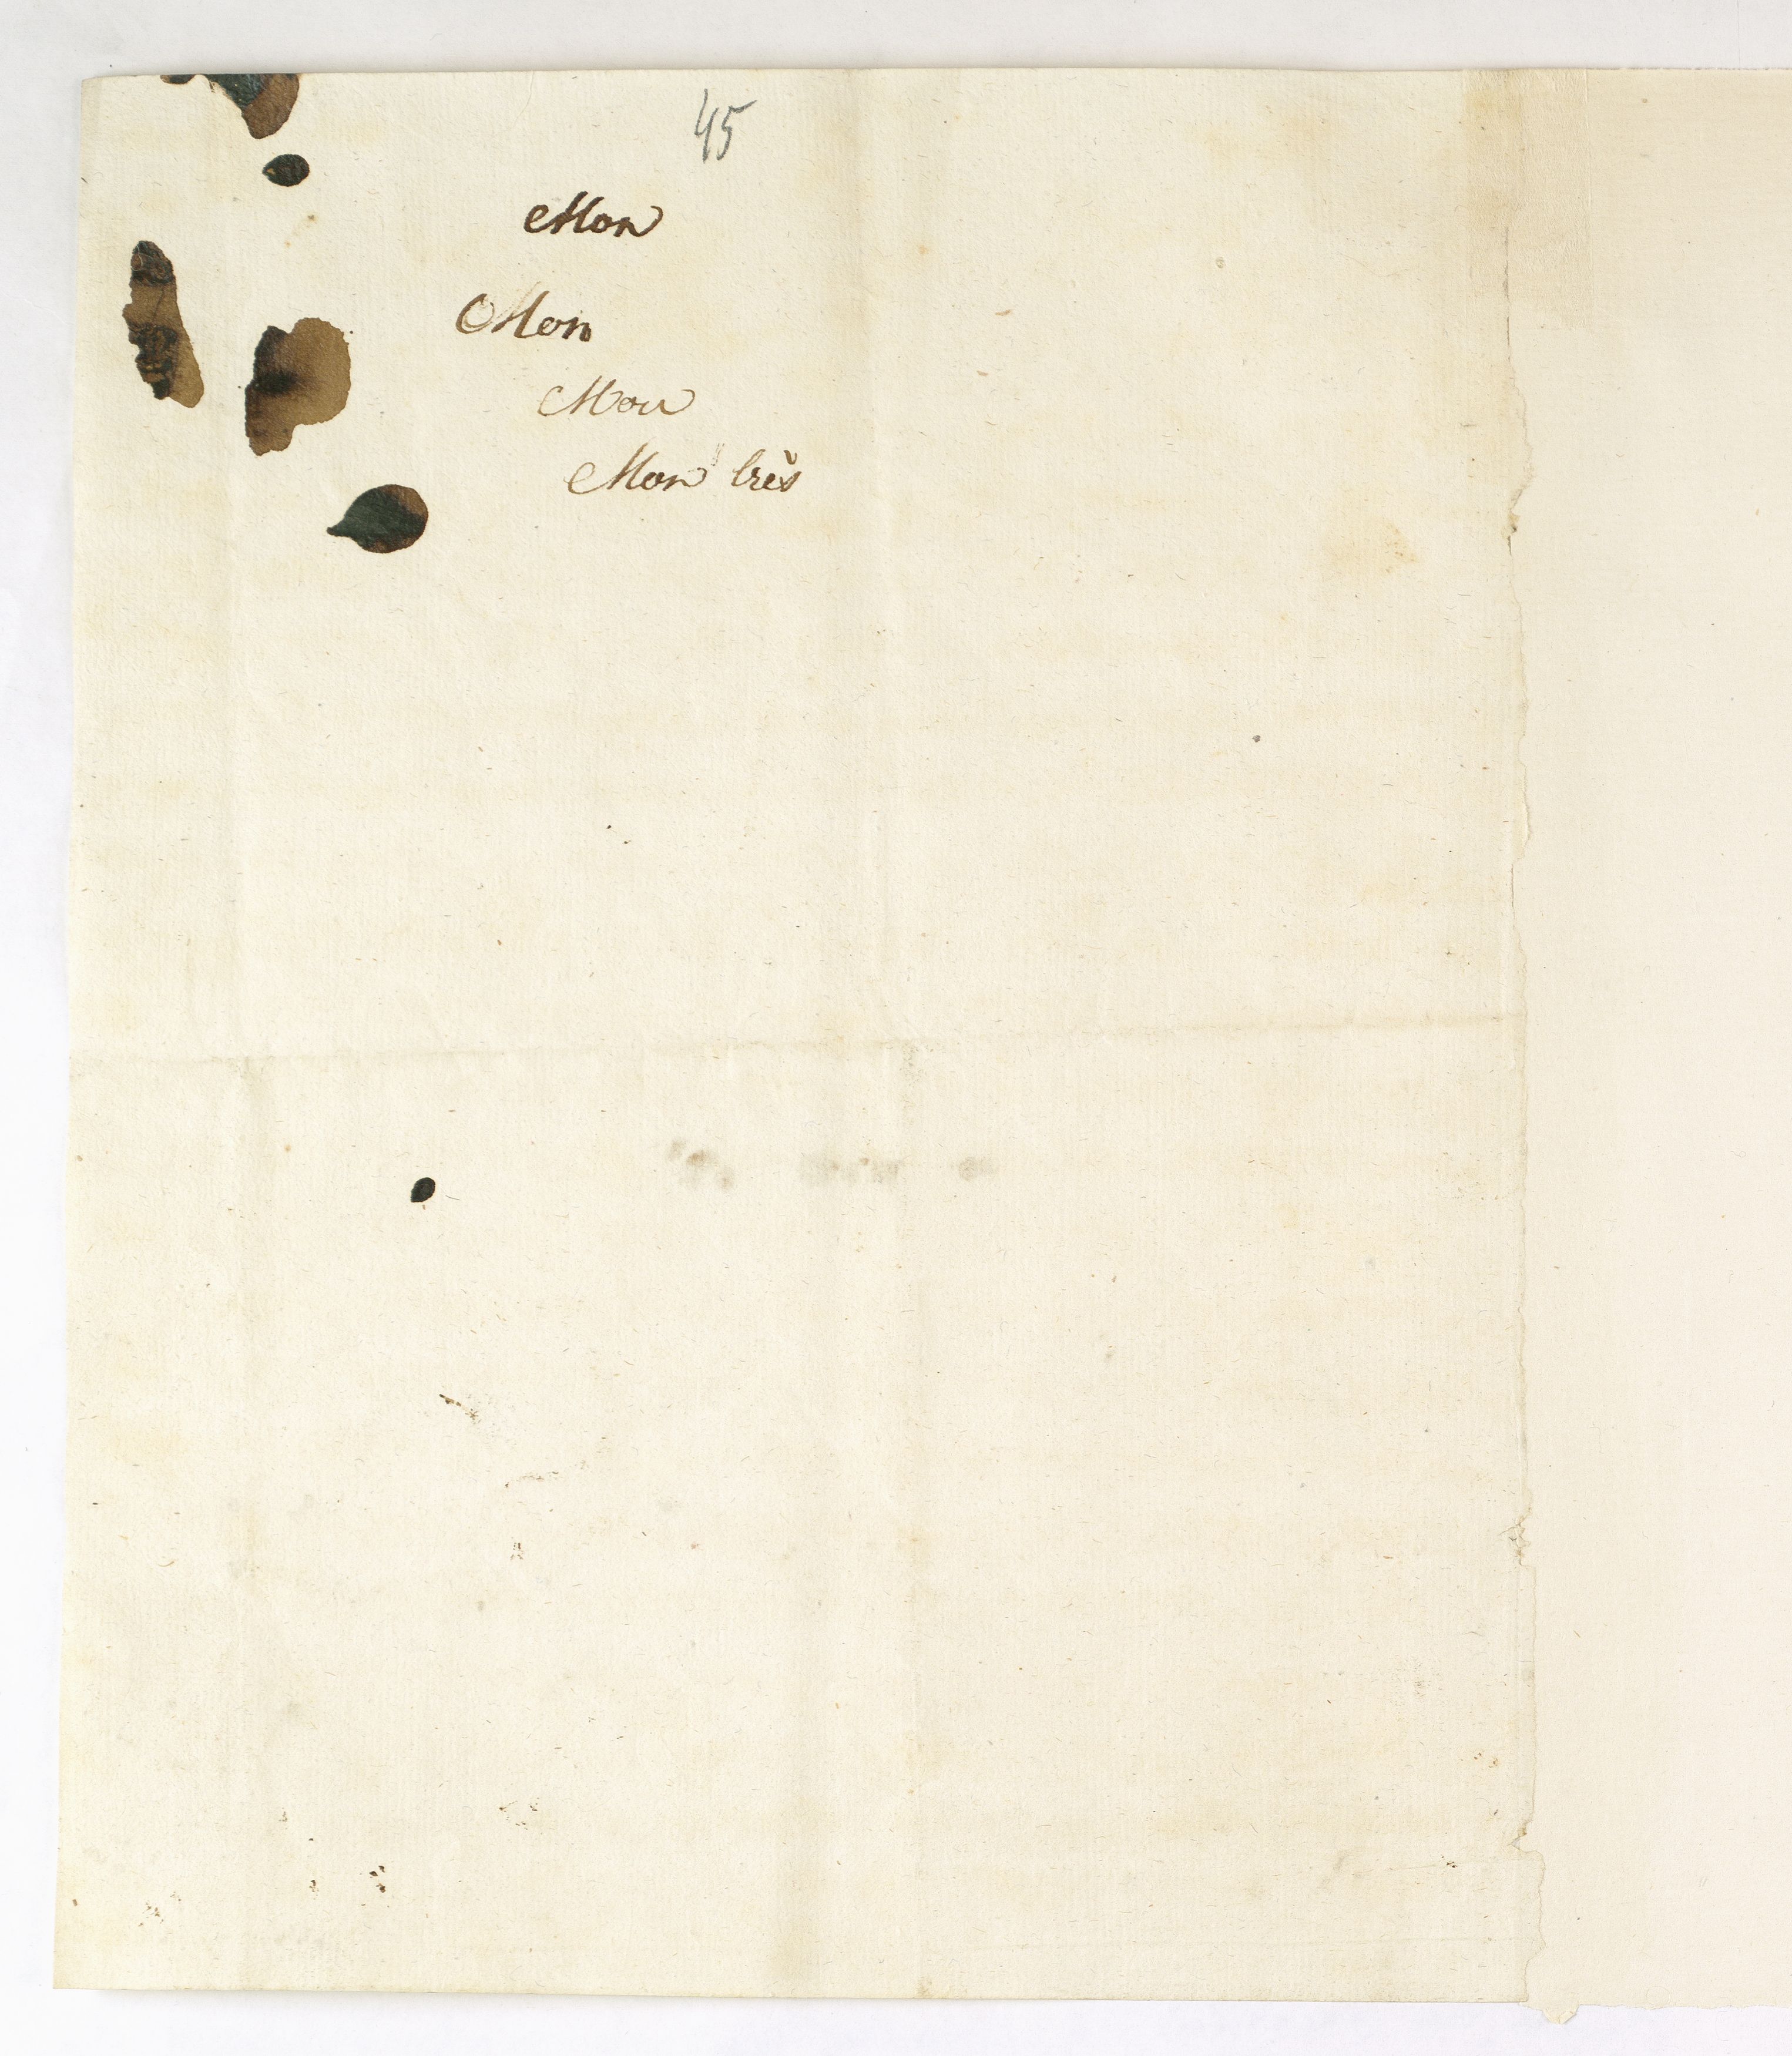 45
Mon
Mon
Mon
Mon très